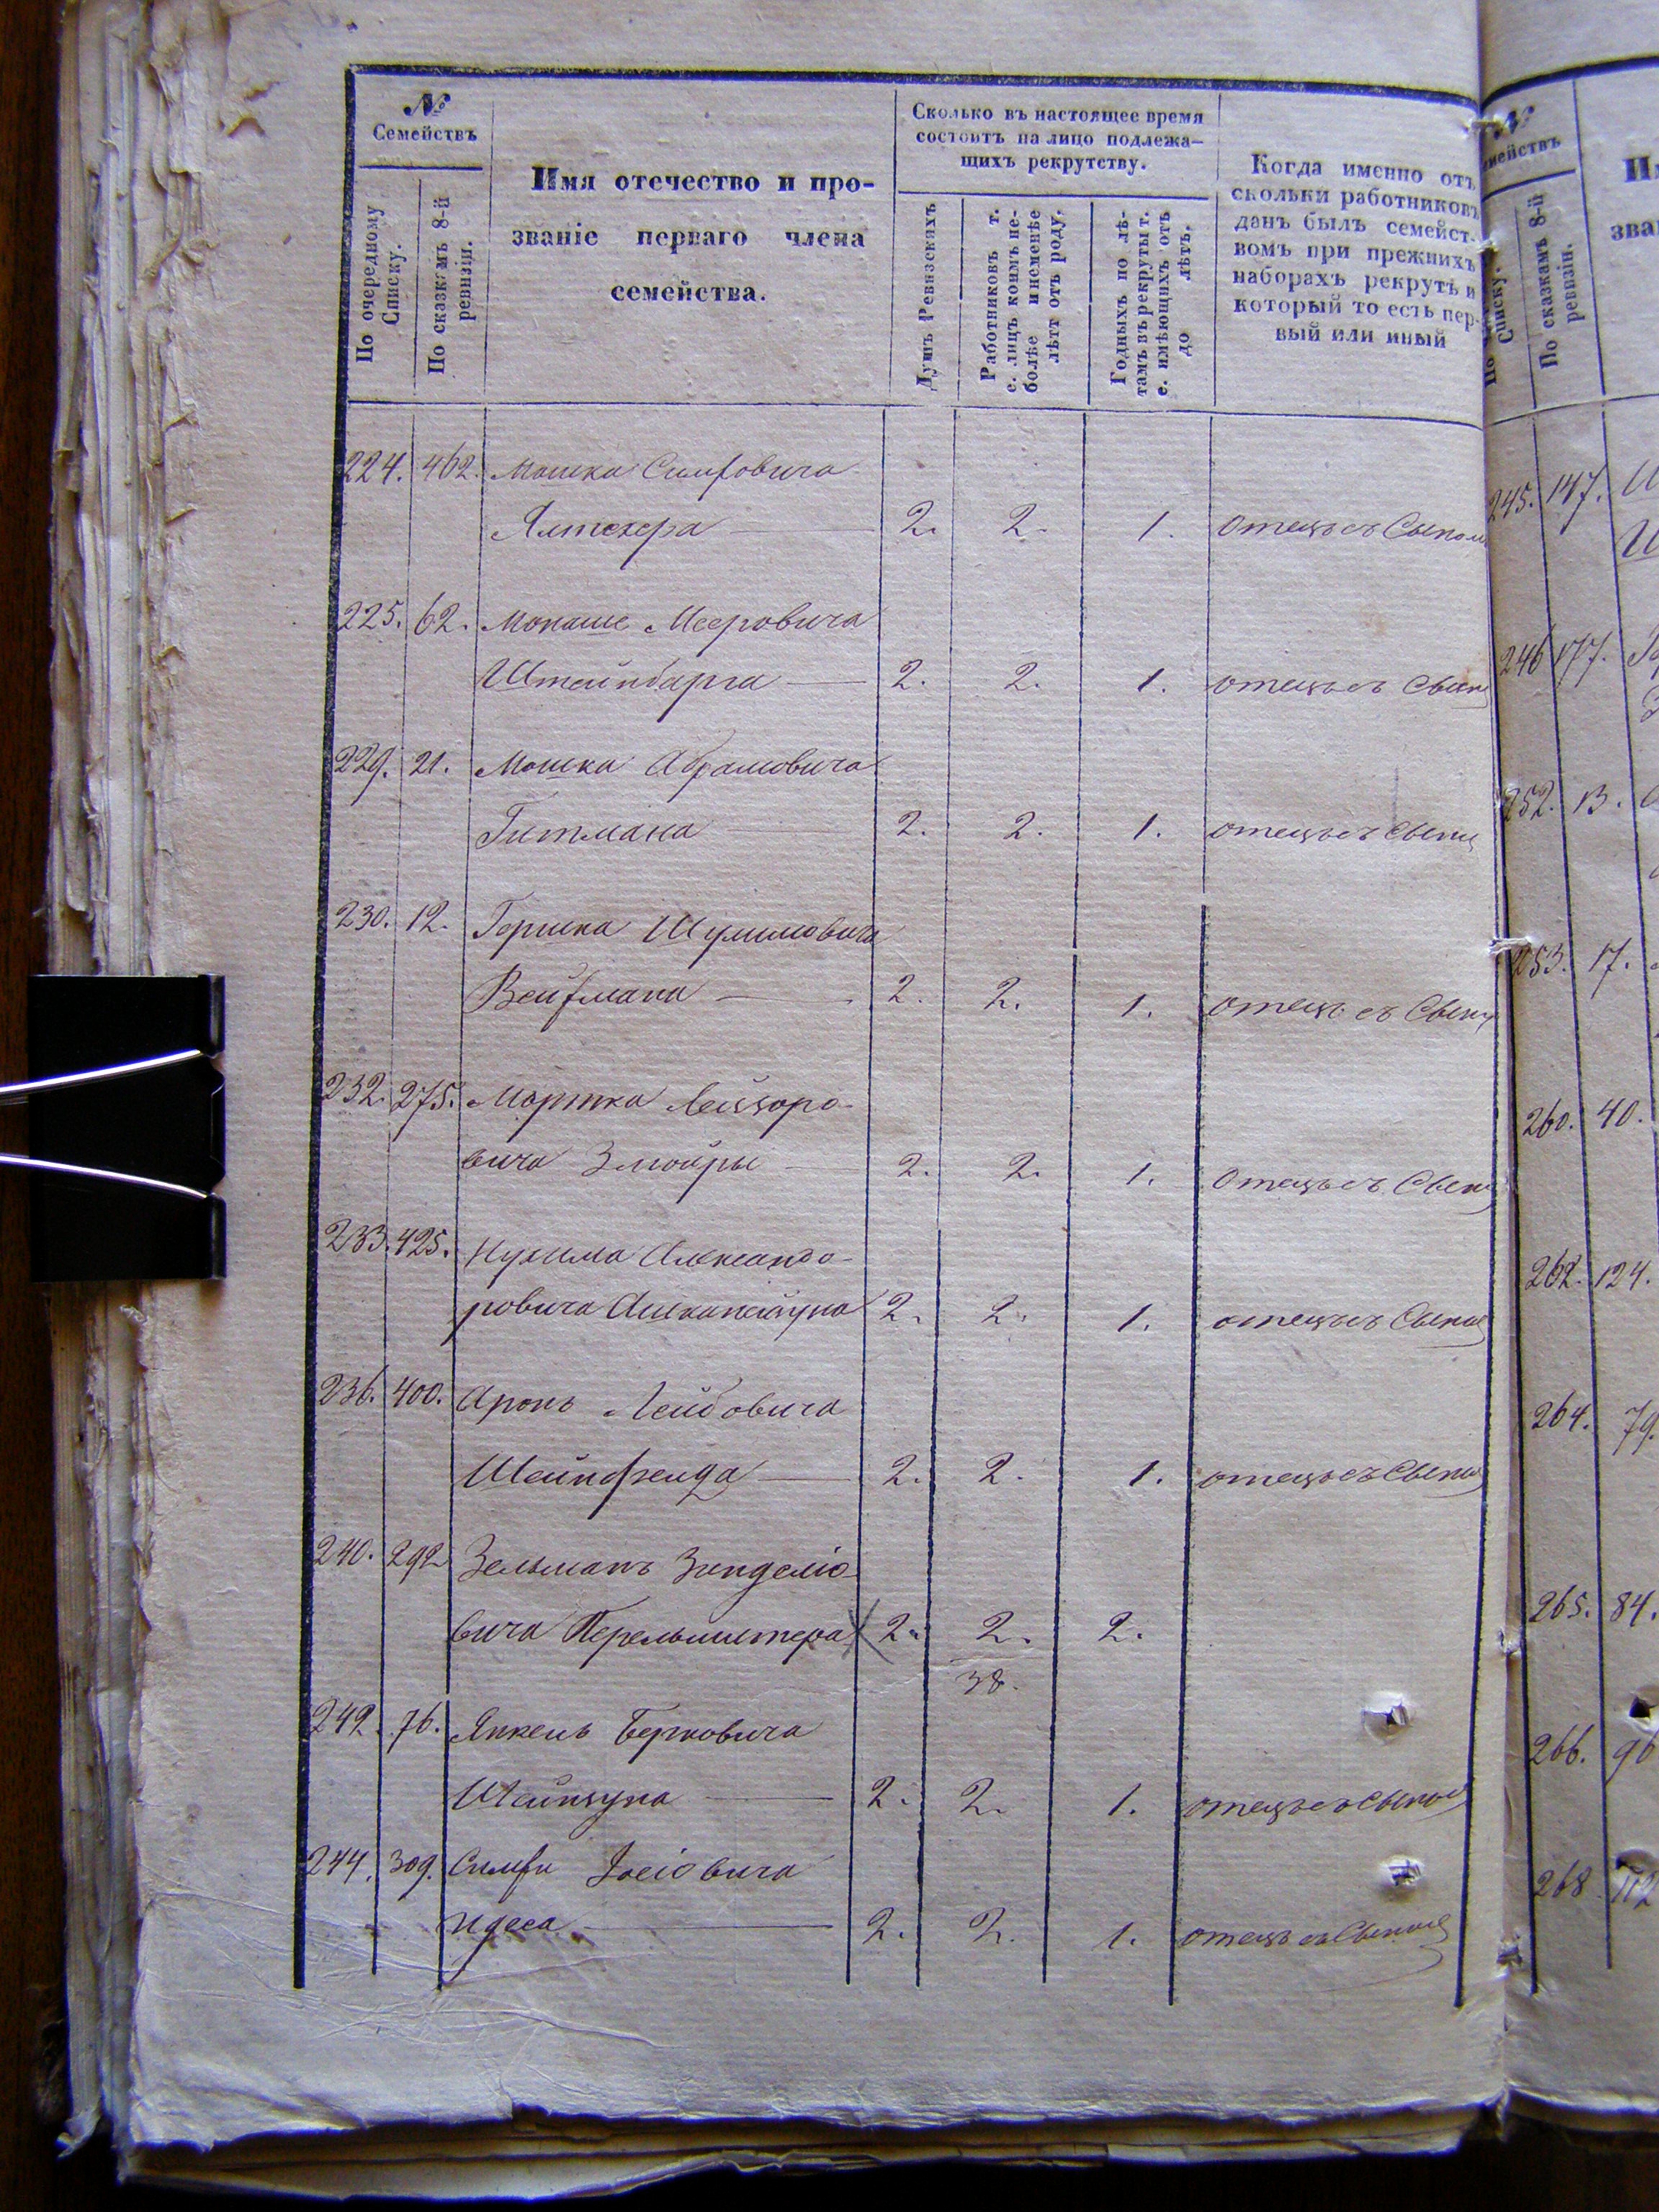 №
Семействъ
По очередному
Списку.
По сказкамъ 8-й
ревизіи.
Имя отечество и про-
званіе перваго члена
семейства.
Сколько въ настоящее время
состоитъ на лицо подлежа-
щихъ рекрутству.
Душъ Ревизскихъ
Работниковъ т.
е. лицъ коимъ не-
болѣе и неменѣе
лѣтъ отъ роду.
Годныхъ по лѣ-
тамъ въ рекруты т.
е. имѣющихъ отъ
до лѣтъ.
Когда именно отъ
скольки работниковъ
данъ былъ семейст-
вомъ при прежнихъ
наборахъ рекрутъ и
который то есть пер-
вый или иный
224. 462. Мошка Симховича
Алтехера 2. 2. 1. отецъ съ Сыном
225. 62. Монаше Мееровича
Штейнбарга 2. 2. 1. отецъ съ Сыно
229. 21. Мошка Абрамовича
Гитмана 2. 2. 1. отецъ съ Сыно
230. 12. Гершка Шулимовича
Вейзмана 2. 2. 1. отецъ съ Сыно
232. 275. Мортка Лейзоро-
вича 2. 2. 1. Отецъ съ Сыно
233. 425. Нухима Александо-
ровича 2. 2. 1. отецъ съ Сыно
236. 400. Аронъ Лейбовича
Шейнфелда 2. 2. 1. отецъ съ Сыно
240. 292 Зельманъ Зинделіо-
вича Перельмитера 2. 2. 2.
38.
242. 76. Янкель Берковича
Шейнцуна 2. 2. 1. отецъ съ Сыно
244. 309. Симхи Іосіовича
Идеса 2. 2. 1. отецъ съ Сыном
245. 147.
246 177.
252. 13.
253. 17.
260. 40.
262. 124.
264. 79.
265. 84.
266. 96
268 112